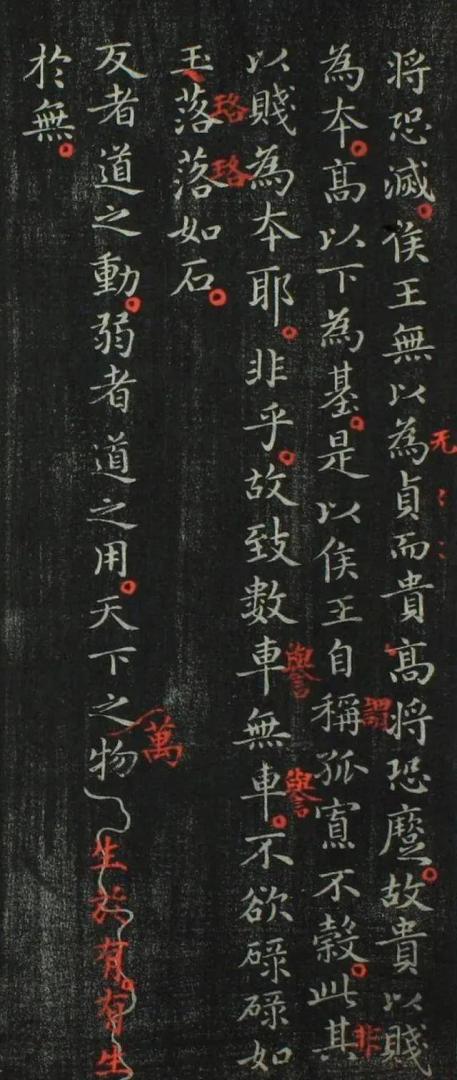 將恐滅。侯王無以為貞而貴髙將恐蹷。故貴以賤
无
為夲。髙以下為基。是以侯王自稱孤寡不穀。此其
謂
非
以賤為夲耶。非乎。故致數車無車。不欲碌碌如
譽
譽
玉落落如石。
珞
珞
反者道之動。弱者道之用。天下之物生於有。有生
萬
於無。